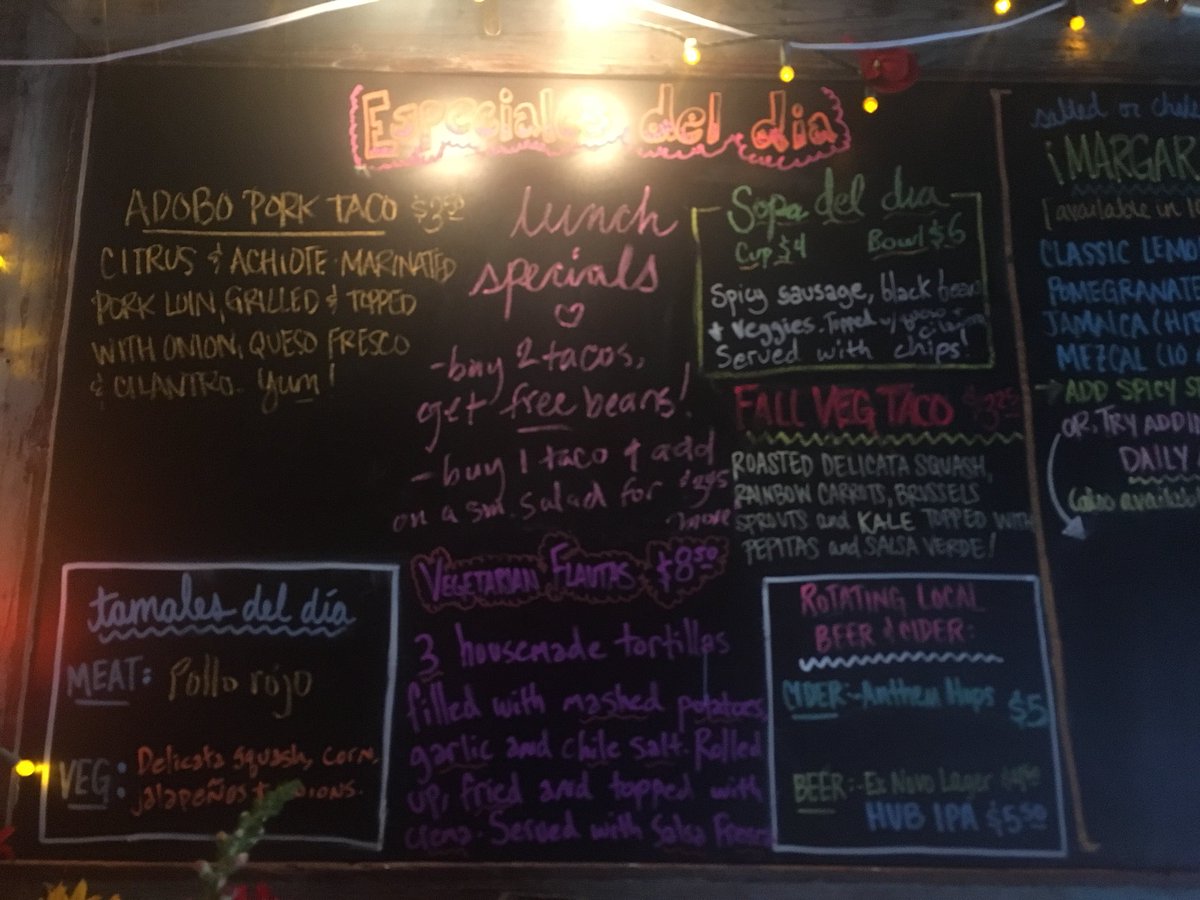 Especiales del dia
ADOBO PORK TACO
CITRUS & ACHIOTE MARINATED
PORK LOIN, GRILLED & TOPPED
WITH ONION, QUESO FRESCO
& CILANTRO. Yum!
lunch
specials
-buy 2 tacos,
get free beans!
-buy 1 taco & add
on a sm. salad for
more
Sopa del dia
Cup $4 Bowl $6
Spicy sausage, black bean
+ veggies. Topped w/ queso +
cilantro
Served with chips!
FALL VEG TACO
ROASTED DELICATA SQUASH,
RAINBOW CARROTS, BRUSSELS
SPROUTS and KALE TOPPED WITH
PEPITAS and SALSA VERDE!
tamales del día
MEAT: Pollo rojo
VEG: Delicata squash, corn,
jalapeños
VEGETARIAN FLAUTAS $8.50
3 housemade tortillas
filled with mashed potatoes,
garlic and chile salt. Rolled
up, fried and topped with
crema. Served with Salsa Fresca
ROTATING LOCAL
BEER & CIDER:
CIDER:-Anthem Hops $5
BEER:-Ex Novo Lager
HUB IPA $5.50
salted or
¡MARGAR
(available in
CLASSIC LEMO
POMEGRANATE
JAMAICA (HI
MEZCAL (10
→ ADD SPICY S
OR, TRY ADDI
DAILY
(also available